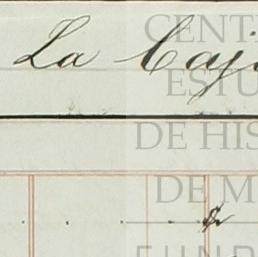 La Caj
CENT
ESTU
DE HIS
DE M
FUND